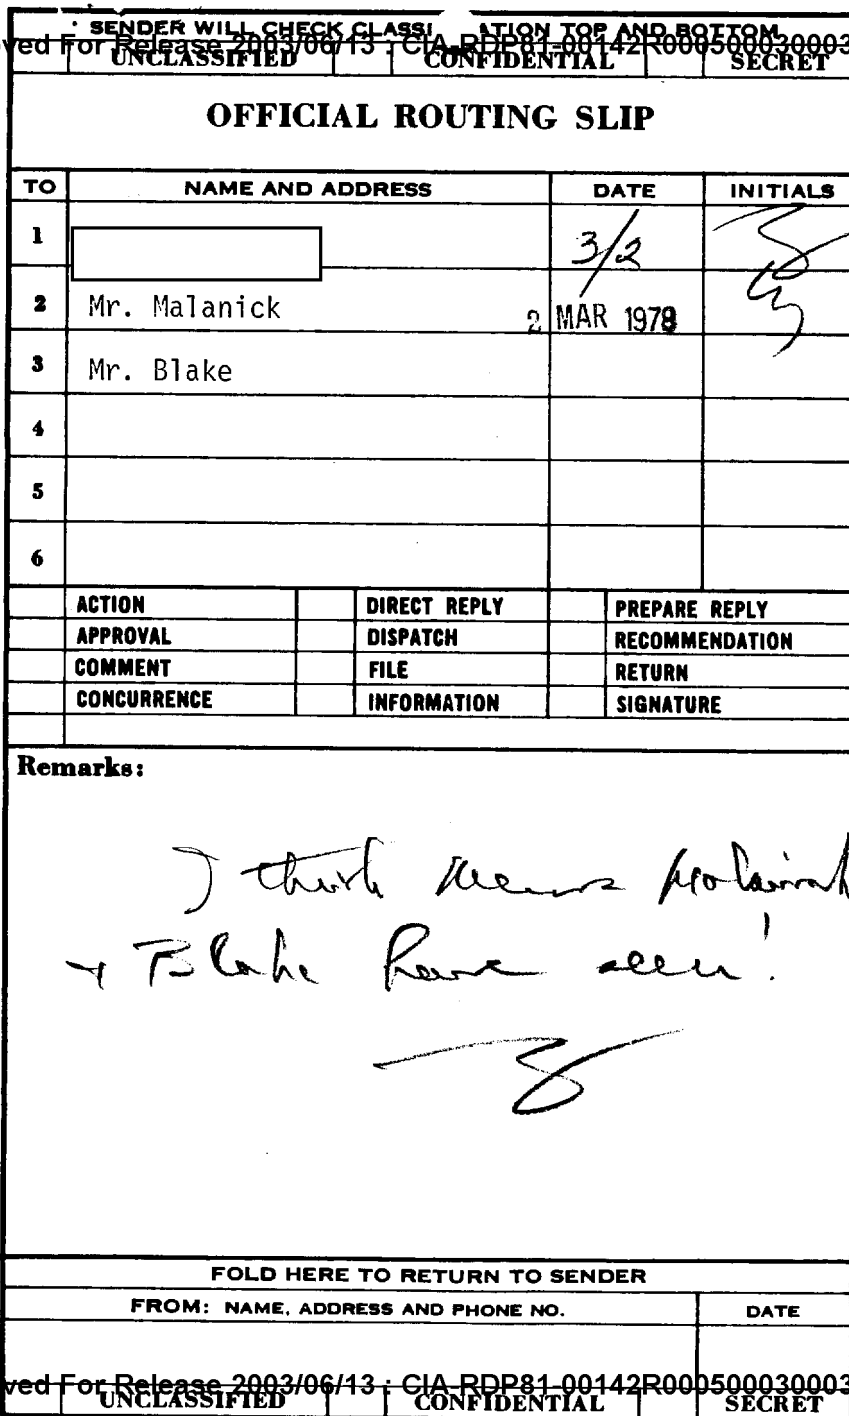 SENDER WILL CHECK CLASSI ATION TOP AND BOTTOM
ved For Release 2003/06/13 : CIA-RDP81-00142R000500030003
UNCLASSIFIED CONFIDENTIAL SECRET
OFFICIAL ROUTING SLIP
TO NAME AND ADDRESS DATE INITIALS
1 3/2
2 Mr. Malanick 2 MAR 1978
3 Mr. Blake
4
5
6
ACTION DIRECT REPLY PREPARE REPLY
APPROVAL DISPATCH RECOMMENDATION
COMMENT FILE RETURN
CONCURRENCE INFORMATION SIGNATURE
Remarks:
I think
+ Blake have seen!
FOLD HERE TO RETURN TO SENDER
FROM: NAME, ADDRESS AND PHONE NO. DATE
ved For Release 2003/06/13 : CIA-RDP81-00142R000500030003
UNCLASSIFIED CONFIDENTIAL SECRET